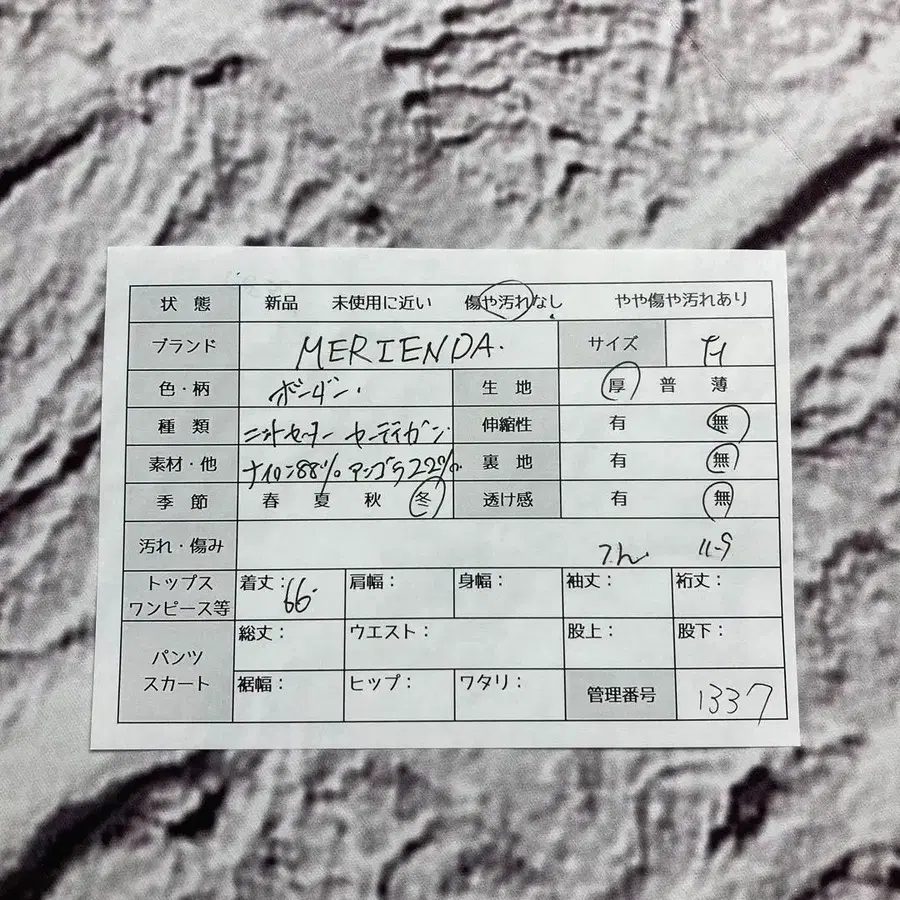 状 態 新品 未使用に近い 傷や汚れなし やや傷や汚れあり
ブランド MERIENDA. サイズ
色・柄 ボーダー. 生 地 厚 普 薄
種 類 ニットセーター カーディガン 伸縮性 有 無
素材・他 ナイロン88% アンゴラ22%. 裏 地 有 無
季 節 春 夏 秋 冬 透け感 有 無
汚れ・傷み 11-9
トップス ワンピース等 着丈: 66. 肩幅: 身幅: 袖丈: 裄丈:
パンツ スカート 総丈: ウエスト: 股上: 股下:
裾幅: ヒップ: ワタリ: 管理番号 1337